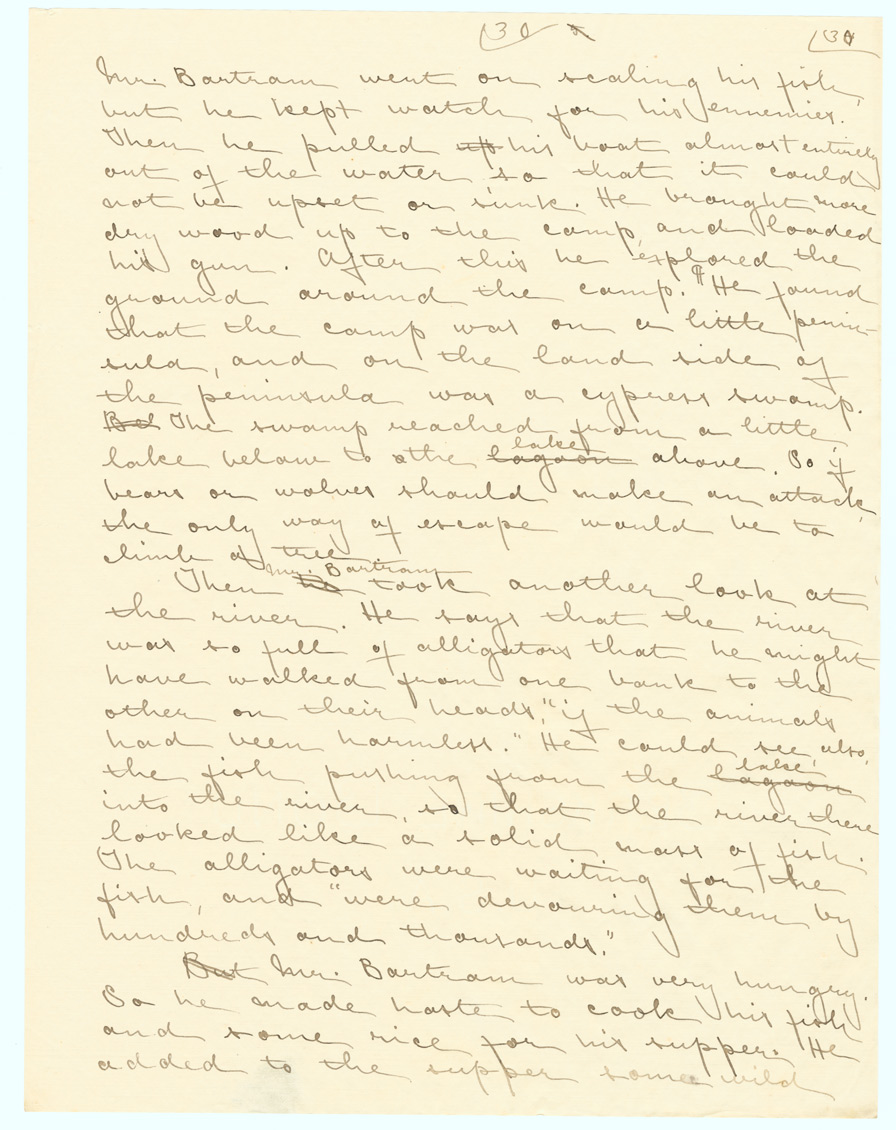 130
130
Mr. Bartram went on scaling his fish,
but he kept watch for his ennemies.
Then he pulled up his boat almost entirely
out of the water so that it could
not be upset or sunk. He brought more
dry wood up to the camp, and loaded
his gun. After this he explored the
ground around the camp. ¶ He found
that the camp was on a little penin-
sula, and on the land side of
the peninsula was a cypress swamp.
But The swamp reached from a little
lake
lake below to the lagoon above. So if
bears or wolves should make an attack,
the only way of escape would be to
climb a tree.
Mr. Bartram
Then he took another look at
the river. He says that the river
was so full of alligators that he might
have walked from one bank to the
other on their heads, "if the animals
had been harmless." He could see also,
lake
the fish pushing from the lagoon
into the river, so that the river there
looked like a solid mass of fish.
The alligators were waiting for the
fish, and "were devouring them by
hundreds and thousands."
But Mr. Bartram was very hungry.
So he made haste to cook his fish
and some rice for his supper. He
added to the supper some wild